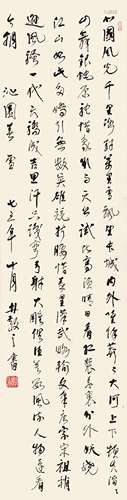 北國風光千里冰封萬里雪飄望長城內外惟餘莽莽大河上下頓失滔滔
山舞銀蛇原馳蠟象欲與天公試比高須晴日看紅裝素裹分外妖嬈
江山如此多嬌引無數英雄競折腰惜秦皇漢武略輸文采唐宗宋祖稍
遜風騷一代天驕成吉思汗只識彎弓射大雕俱往矣數風流人物還看
今朝 沁園春雪 七五年十月 林散之書